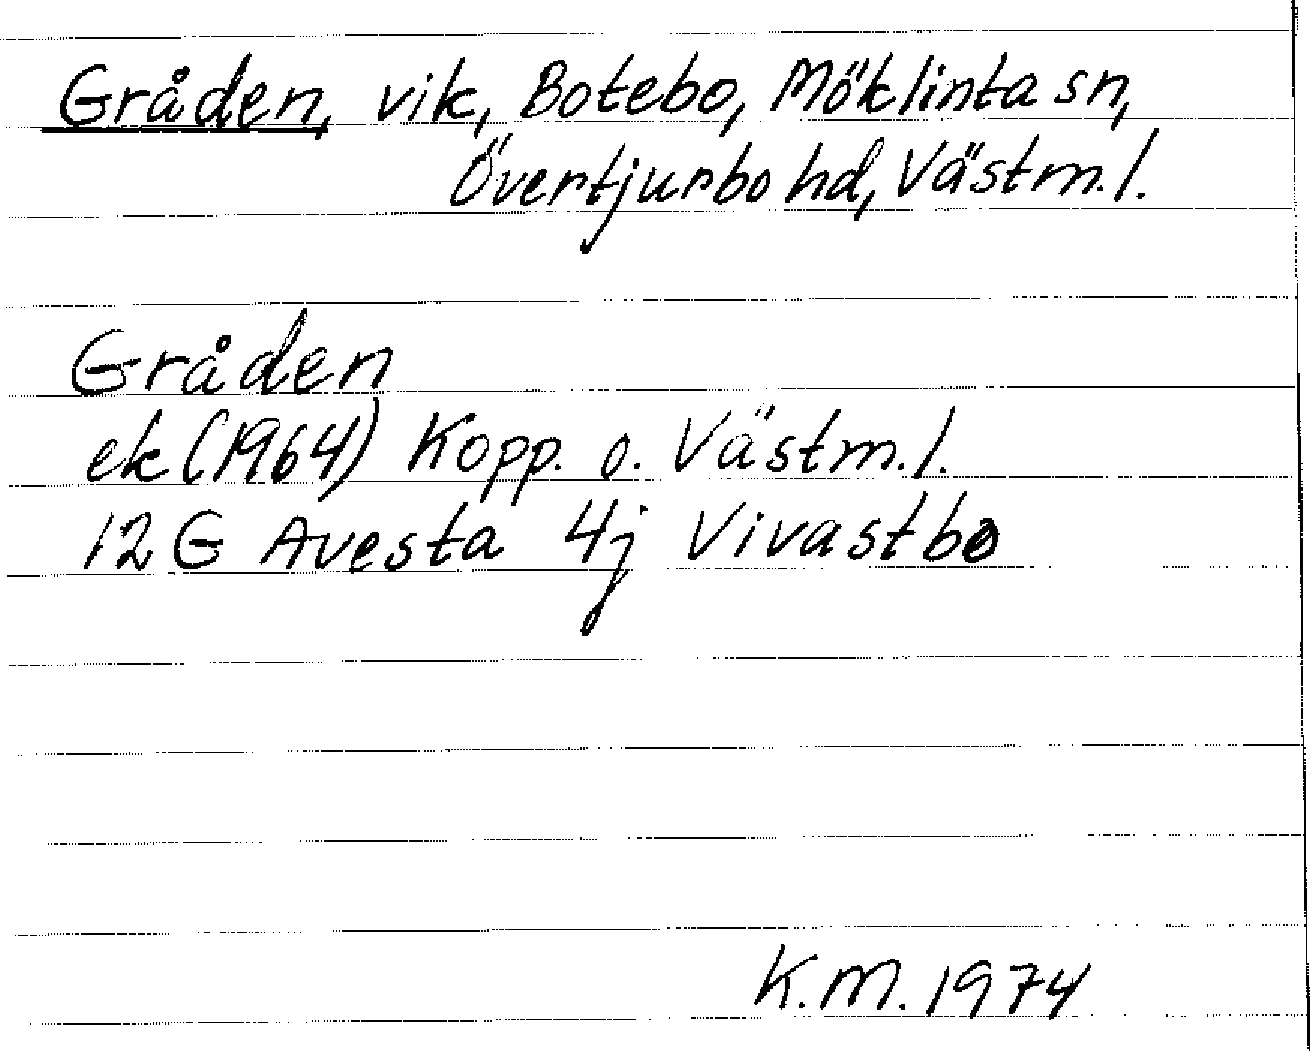 Gråden, vik, Botebo, Möklinta sn,
Övertjurbo hd, Västm. l.
Gråden
ek (1964) Kopp. o. Västm. l.
12 G Avesta 4j Vivastbo
K. M. 1974